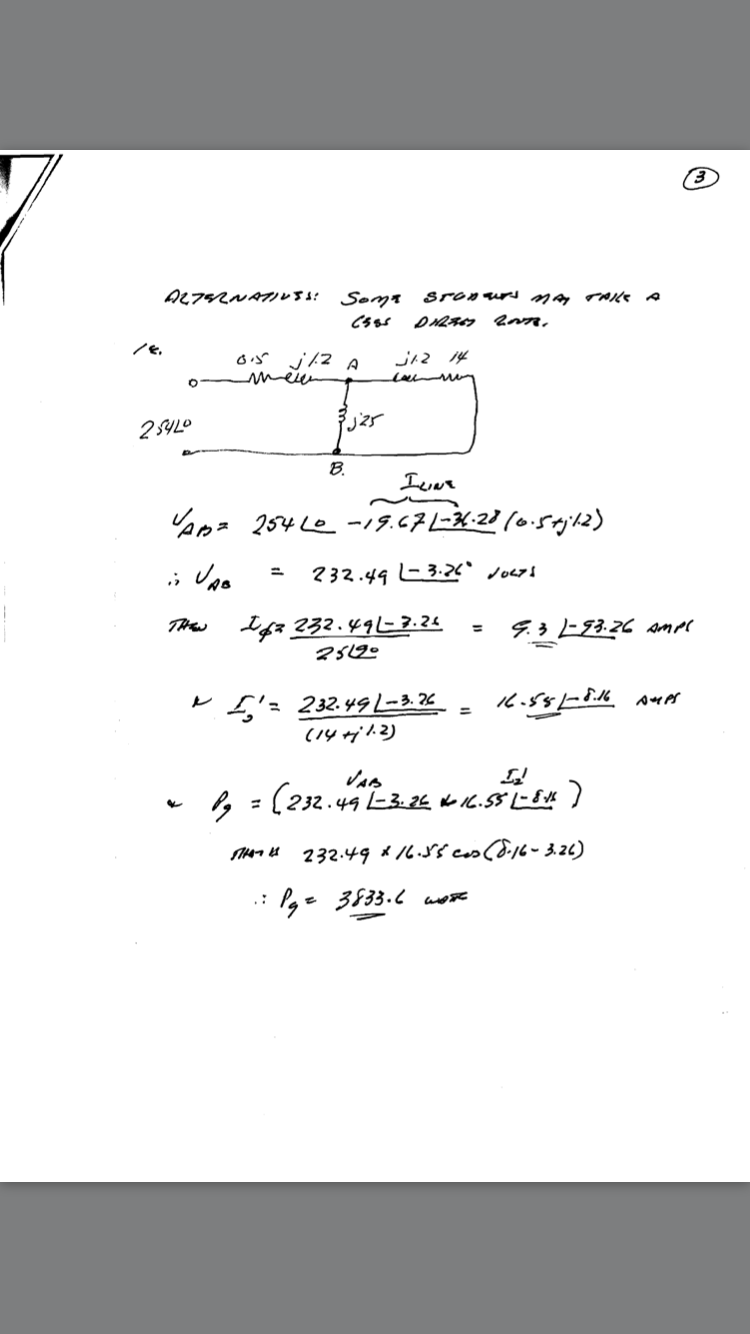 3
ALTERNATIVES: SOME STUDENTS MAY TAKE A
LESS DIRECT ROUTE.
ie.
0.5 j1.2 A j1.2 14
j25
254∠0
B.
I LINE
V_AB = 254∠0 - 19.67∠-36.28 (0.5+j1.2)
∴ V_AB = 232.49∠-3.26° VOLTS
THEN I_φ = 232.49∠-3.26 / 25∠90 = 9.3∠-93.26 AMPS
I_2' = 232.49∠-3.26 / (14+j1.2) = 16.55∠-8.16 AMPS
V_AB I_2'
P_g = (232.49∠-3.26 16.55∠-8.16)
THAT IS 232.49 x 16.55 cos(8.16-3.26)
∴ P_g = 3833.6 WATTS